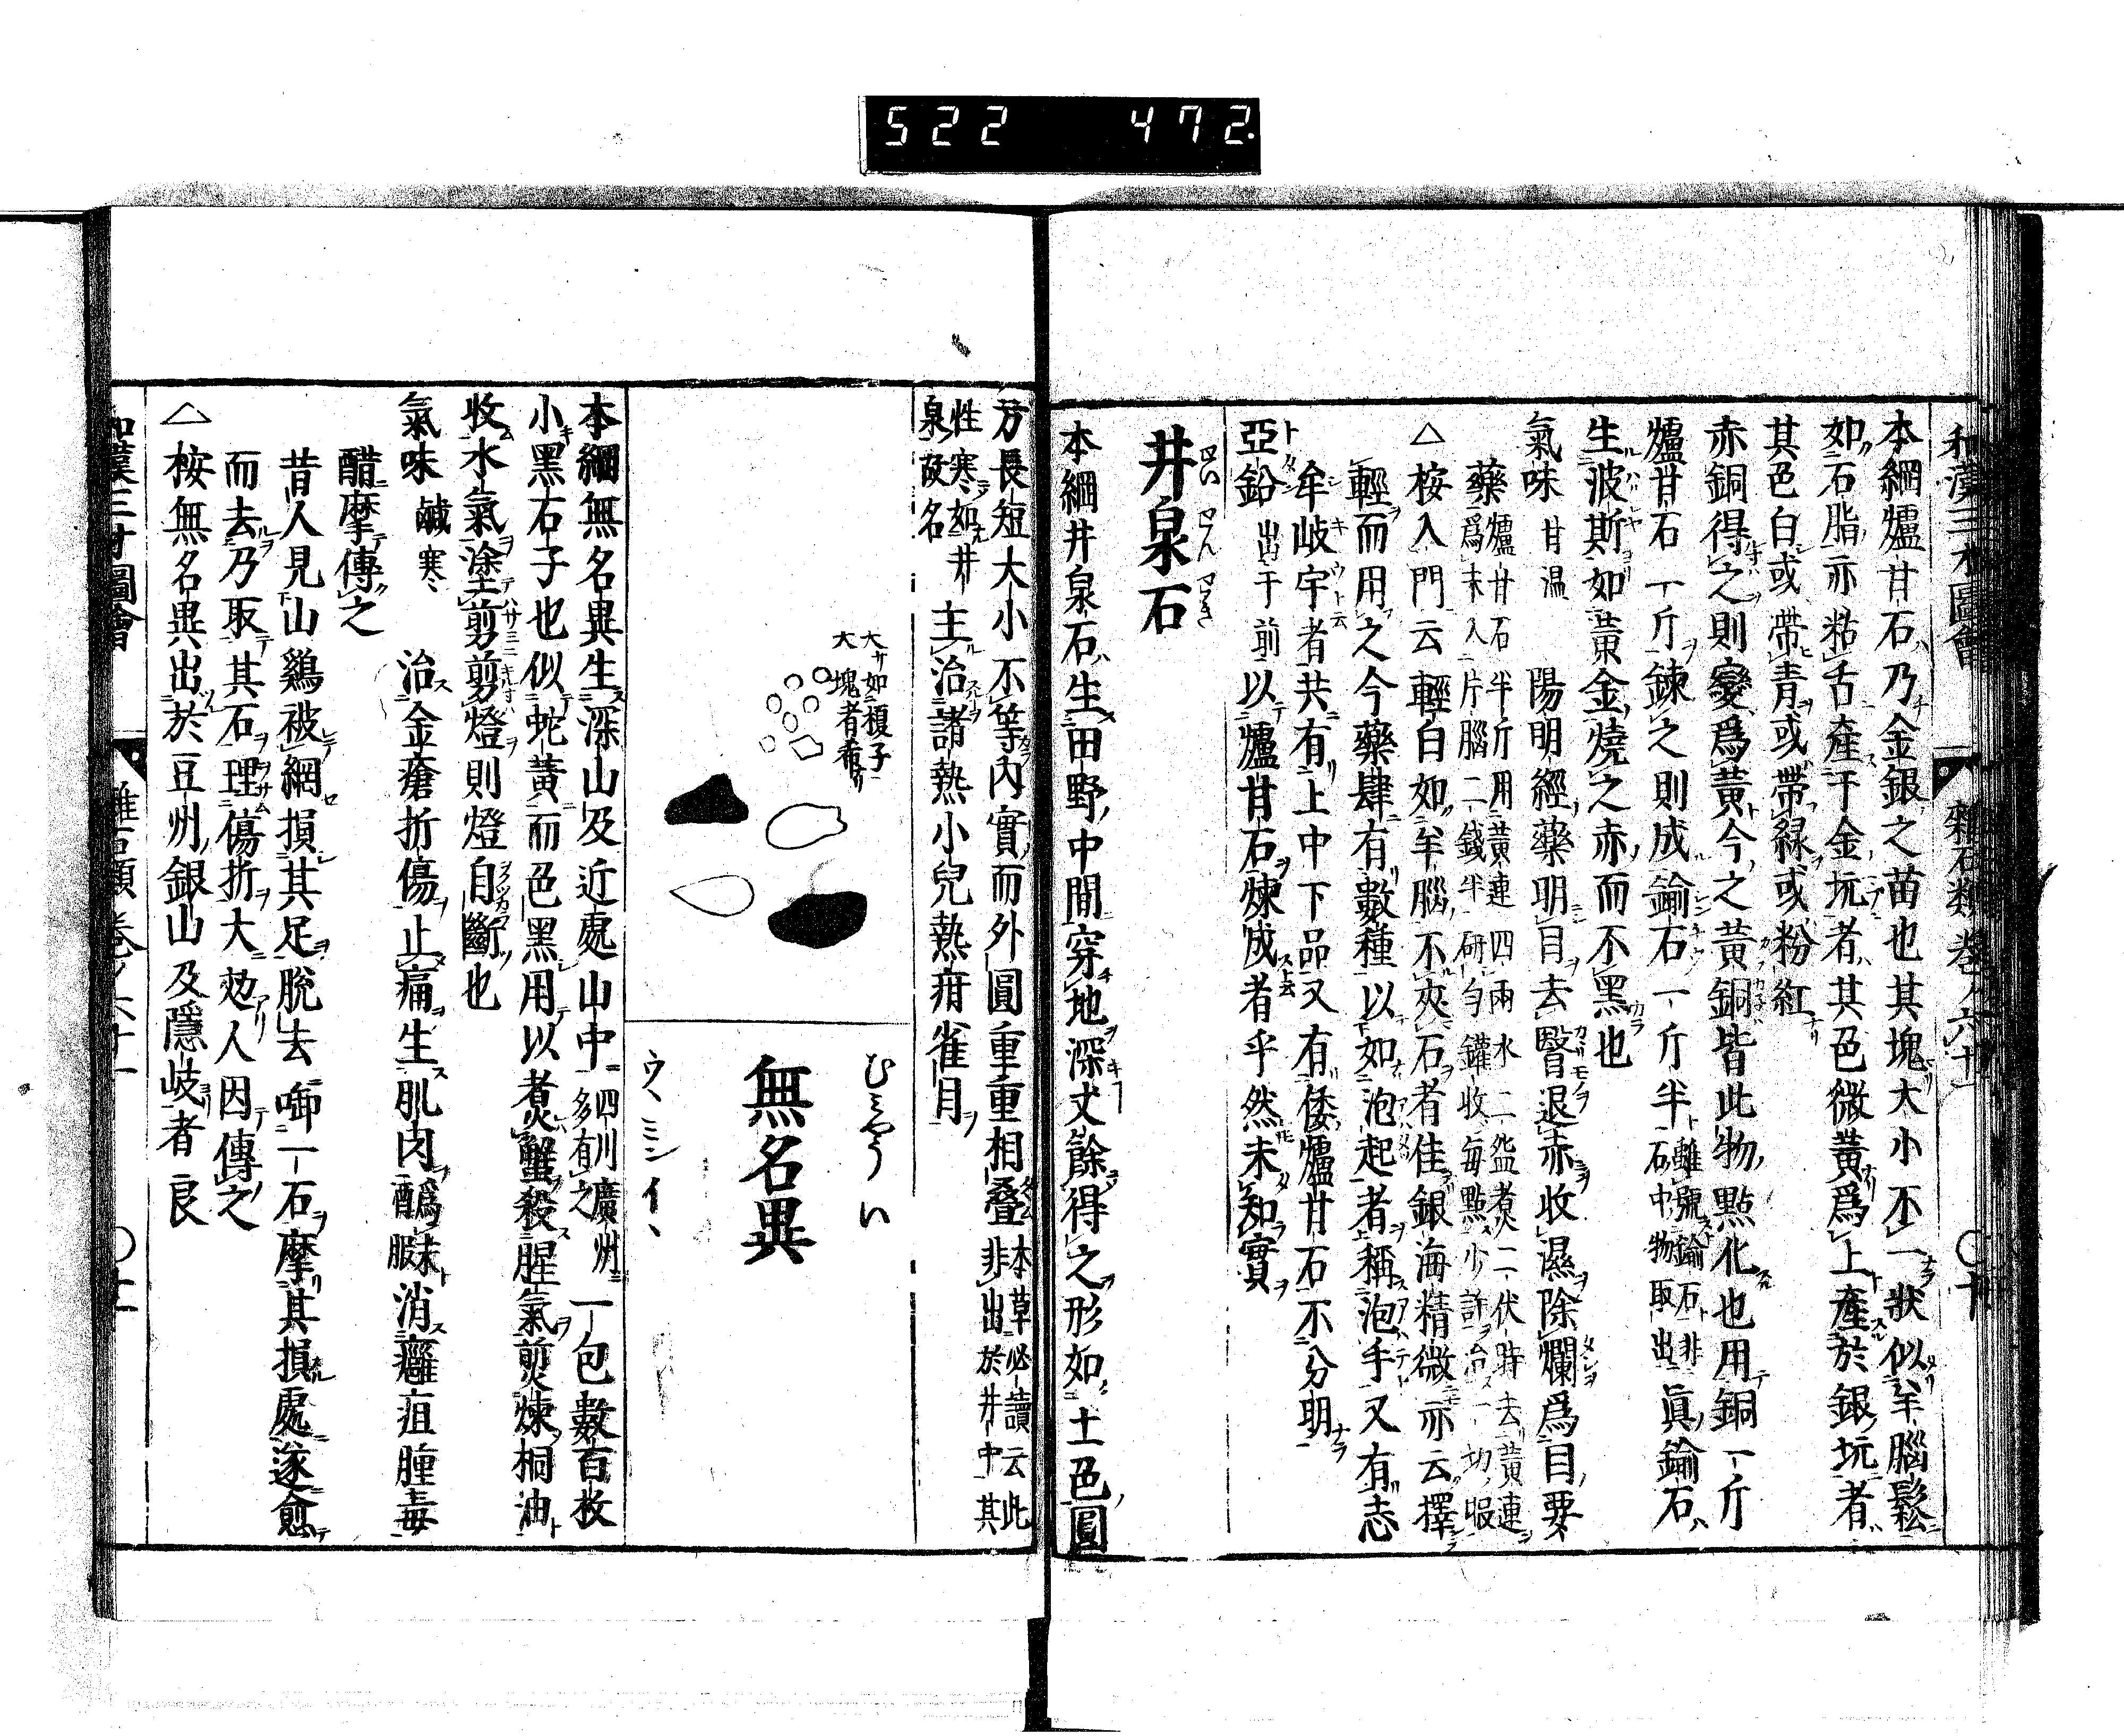 522 472
和漢三才圖會 雜石類 巻ノ六十一 〇十
本綱爐甘石乃金銀之苗也其塊大小不一狀似羊腦鬆
如石脂亦粘舌産于金坑者其色微黄爲上産於銀坑者
其色白或帶青或帶緑或粉紅
赤銅得之則變爲黄今之黄銅皆此物點化也用銅一斤
爐甘石一斤鍊之則成鍮石一斤半 雖號鍮石非石中物取出 眞鍮石
生波斯如黄金燒之赤而不黑也
氣味 甘温 陽明經藥明目去醫退赤收濕除爛爲目要
藥 爐甘石半斤用黄連四兩水二盌煮二伏時去黄連爲末入片腦二錢半研匀鑵收毎點少許治一切眼
△按入門云輕白如羊腦不夾石者佳銀海精微亦云擇
輕而用之今藥肆有數種以如泡起者稱泡手又有志
牟岐宇者共有上中下品又有倭爐甘石不分明
亞鉛 出于前 以爐甘石煉成者乎然未知實
井泉石
本綱井泉石生田野中間穿地深丈餘得之形如土色圓
方長短大小不等内實而外圓重重相疊 本草必讀云此非出於井中其
性寒如井泉故名 主治諸熱小兒熱疳雀目
大サ如榎子
大塊者希
むみやうい
無名異
ウヽミンイヽ
本綱無名異生深山及近處山中 四川廣州多有之 一包數百枚
小黑石子也似蛇黄而色黑用以煮蟹殺腥氣煎煉桐油
收水氣塗剪剪燈則燈自斷也
氣味 鹹寒 治金瘡折傷止痛生肌肉 爲末酢服 消癰疽腫毒
醋摩傳之
昔人見山鷄被網損其足脱去啣一石摩其損處遂愈
而去乃取其石理傷折大効人因傳之
△按無名異出於豆州銀山及隱岐者良
和漢三才圖會 雜石類 巻ノ六十一 〇十一